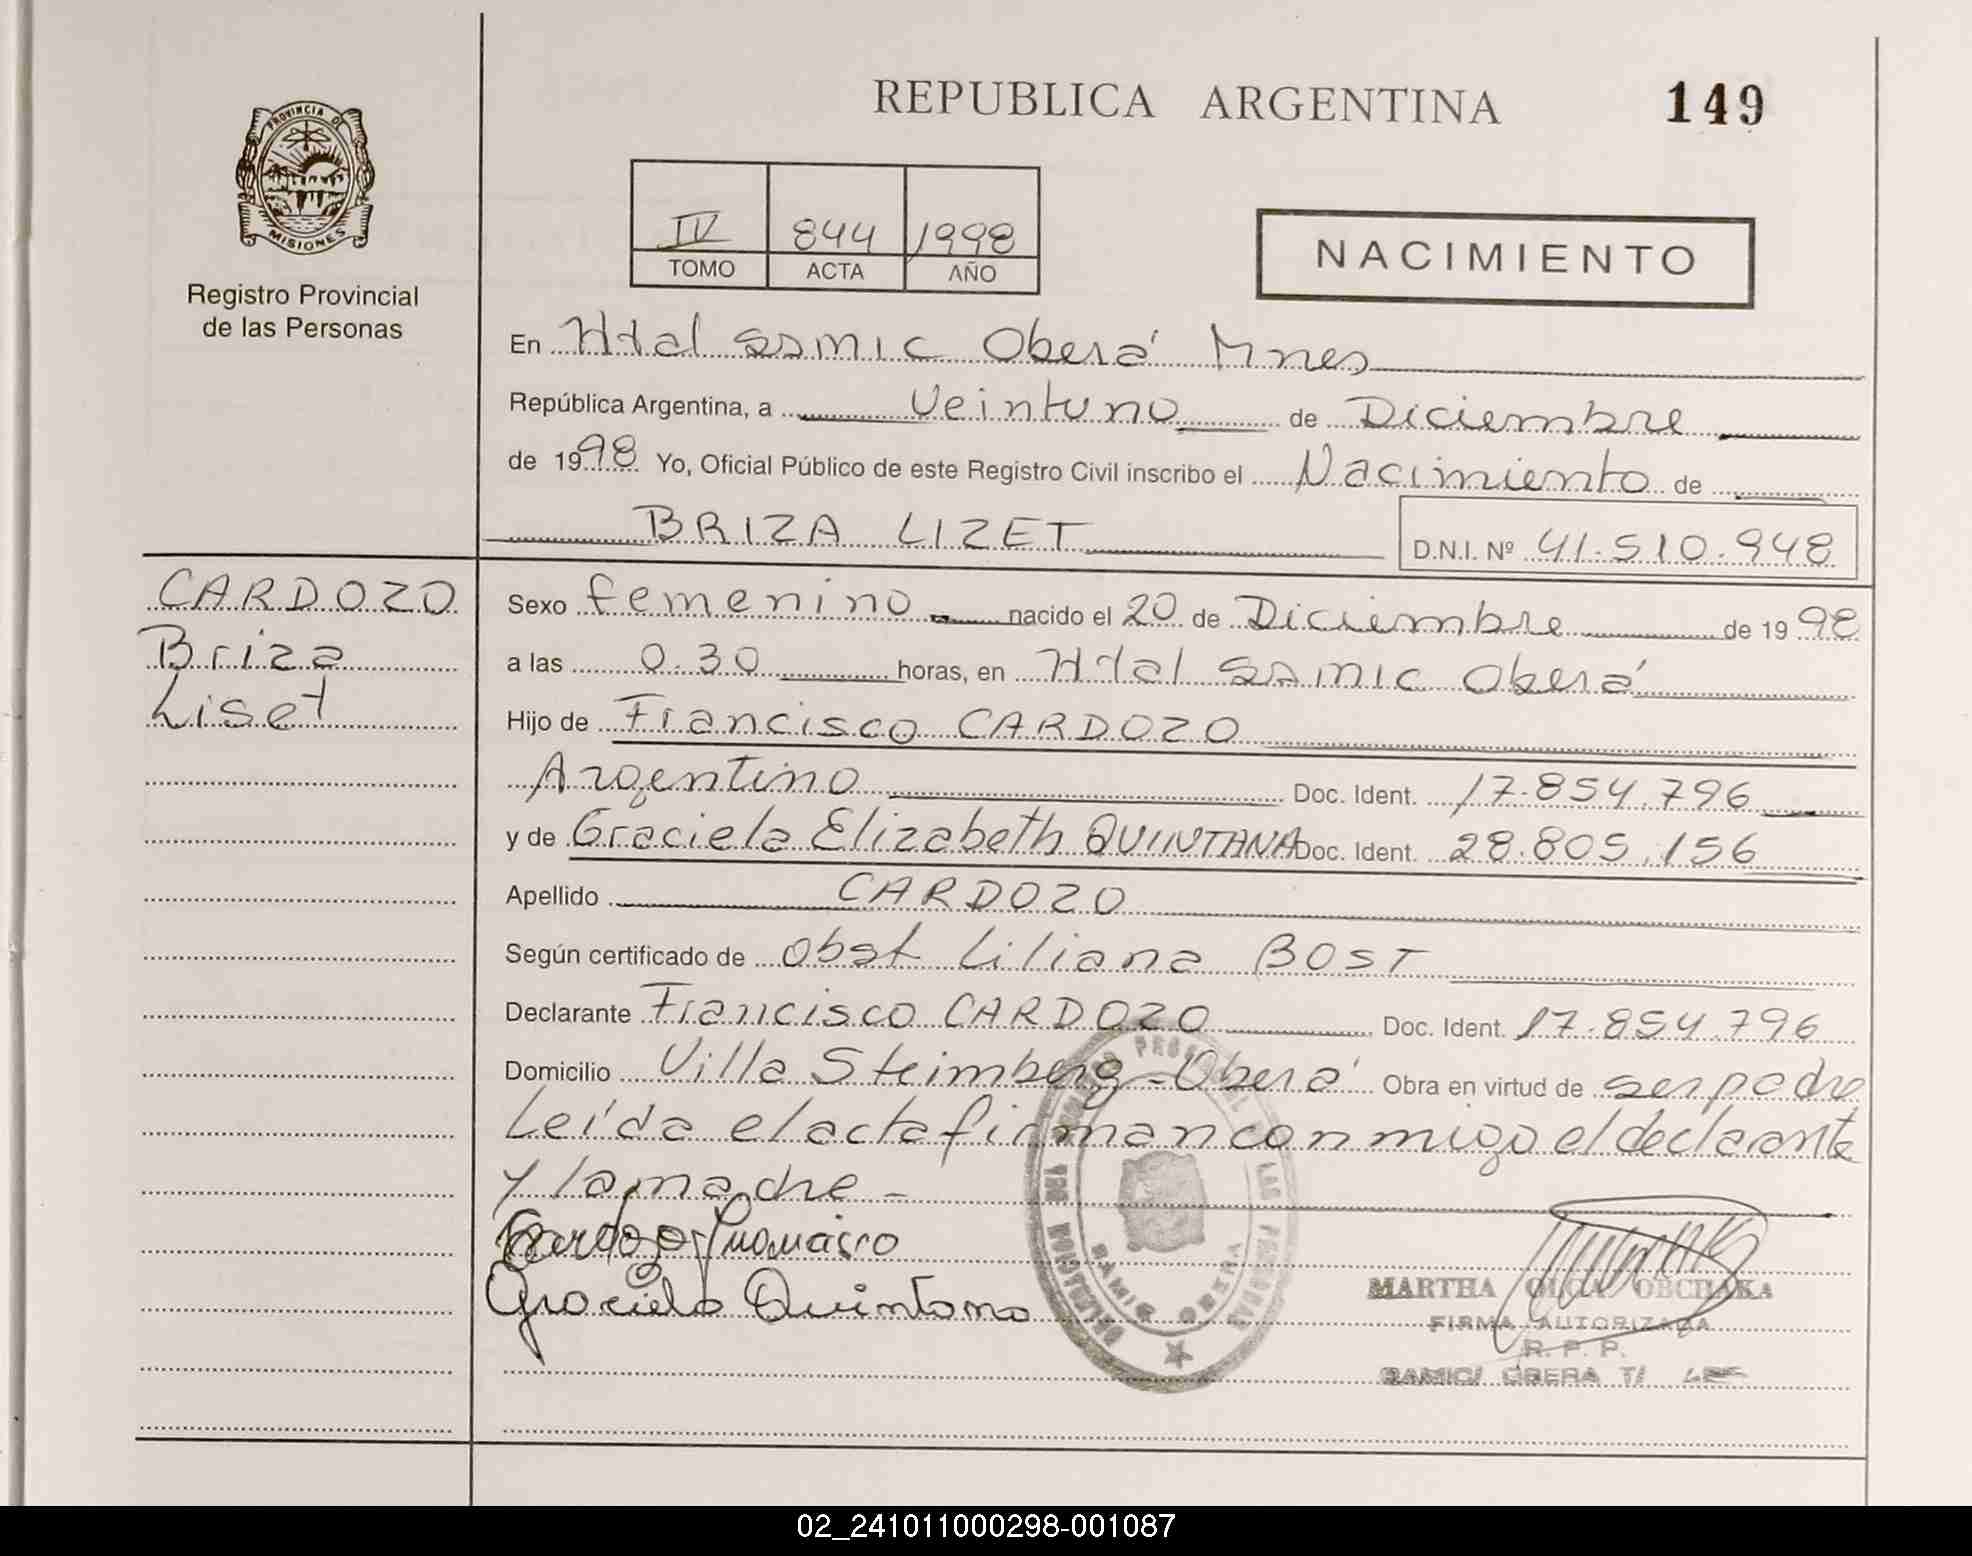 REPUBLICA ARGENTINA
149
PROVINCIA DE
MISIONES
Registro Provincial
de las Personas
IV 844 1998
TOMO ACTA AÑO
NACIMIENTO
En Htal SAMIC Oberá Mnes
República Argentina, a Veintuno de Diciembre
de 1998 Yo, Oficial Público de este Registro Civil inscribo el Nacimiento de
BRIZA LIZET
D.N.I. Nº 41.510.948
CARDOZO
Briza
Liset
Sexo femenino nacido el 20 de Diciembre de 1998
a las 0.30 horas, en Htal SAMIC Oberá
Hijo de Francisco CARDOZO
Argentino Doc. Ident. 17.854.796
y de Graciela Elizabeth QUINTANA Doc. Ident. 28.805.156
Apellido CARDOZO
Según certificado de obst Liliana BOST
Declarante Francisco CARDOZO Doc. Ident. 17.854.796
Domicilio Villa Steimberg - Oberá Obra en virtud de ser padre
Leída el acta firman conmigo el declarante
y la madre -
Cardozo Francisco
Graciela Quintana
DELEGACION
LAS PERSONAS
SAMIC OBERA
MARTHA OLGA OBCHAKA
FIRMA AUTORIZADA
R. P. P.
SAMIC/ OBERA T/
02_241011000298-001087